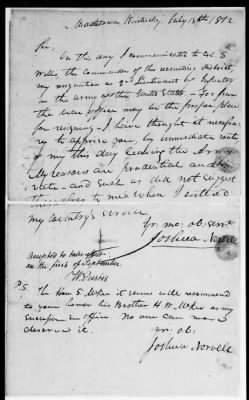 Middletown Kentucky July 13th 1812
Sir,
On this day I communicated to Col. S.
Wells, the commander of the recruiting district,
my resignation as 2nd Lieutenant of Infantry
in the army of the United States. For fear
the war office may be the proper place
for resigning - I have thought it necessa-
ry to apprize you, by immediate route
of my this day leaving the Army
My reasons are prudential and
and such as did not suggest
themselves to me when I entered
my country's service
yr. mo. ob. servt.
Joshua Norvell
accepted to take effect
on the first of September
W. Eustis
P.S. The Hon S. McKee it seems will recommend
to your honor his Brother H. W. McKee as my
successor in office. No one can more
deserve it.
yr. ob.
Joshua Norvell